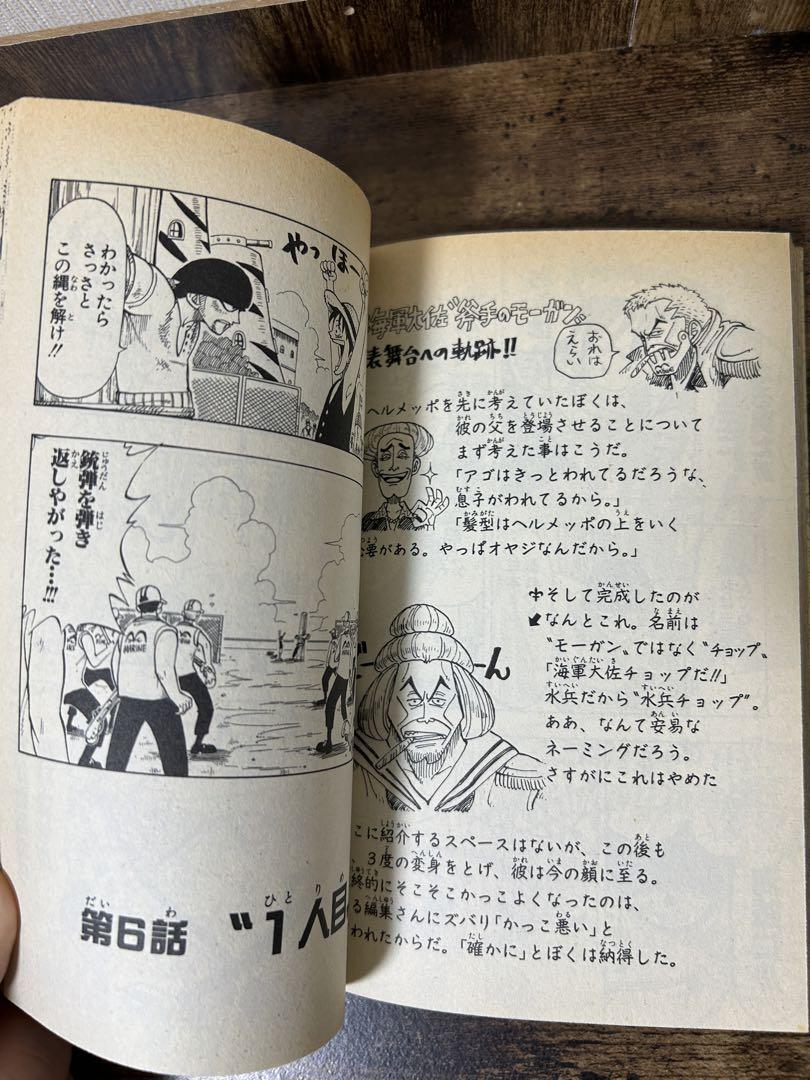 海軍大佐“斧手のモーガン”
表舞台への軌跡!!
おれは
えらい
ヘルメッポを先に考えていたぼくは、
彼の父を登場させることについて
まず考えた事はこうだ。
「アゴはきっとわれてるだろうな、
息子がわれてるから。」
「髪型はヘルメッポの上をいく
要がある。やっぱオヤジなんだから。」
そして完成したのが
なんとこれ。名前は
“モーガン”ではなく“チョップ”
「海軍大佐チョップだ!!」
水兵だから“水兵チョップ”。
ああ、なんて安易な
ネーミングだろう。
さすがにこれはやめた
ーん
こに紹介するスペースはないが、この後も
、3度の変身をとげ、彼は今の顔に至る。
終的にそこそこかっこよくなったのは、
る編集さんにズバリ「かっこ悪い」と
われたからだ。「確かに」とぼくは納得した。
やっほー
わかったら
さっさと
この縄を解け!!
銃弾を弾き
返しやがった…!!!
MARINE
第6話 “1人目